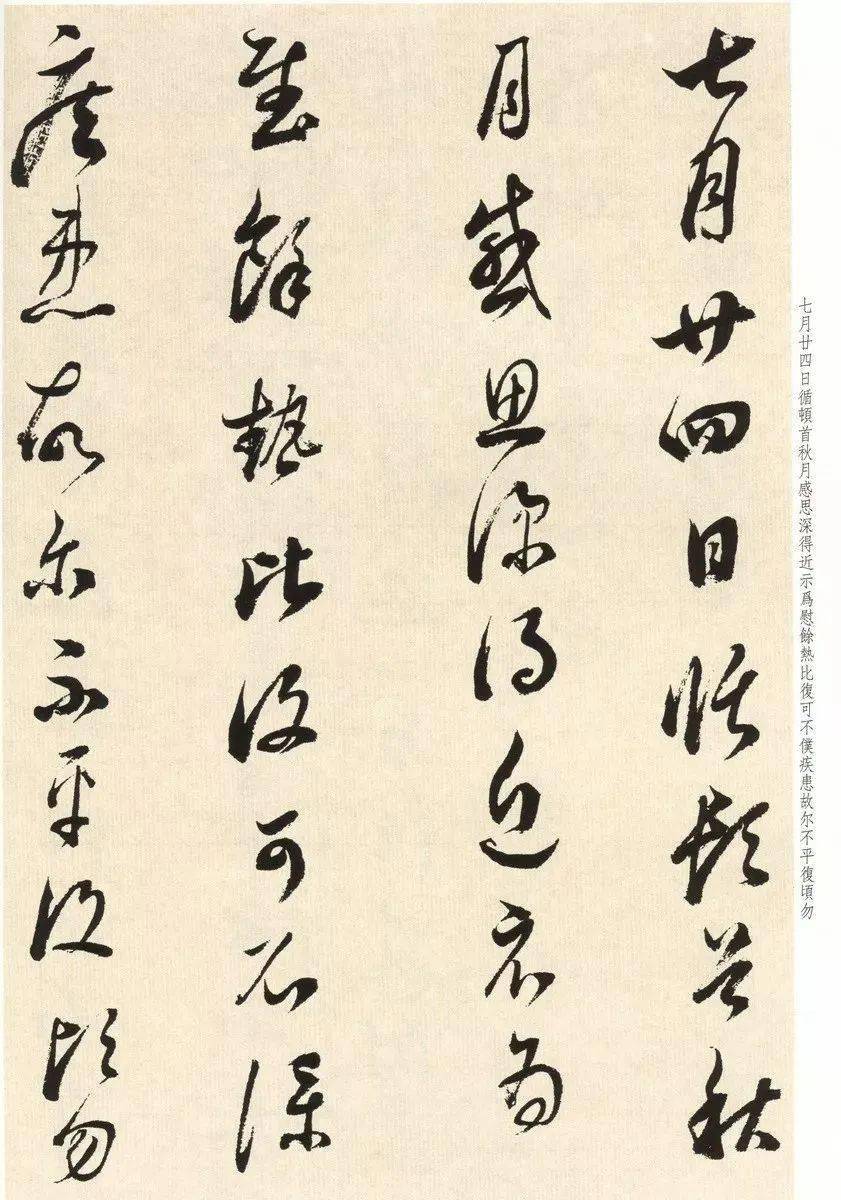 七月廿四日循頓首秋
月感思深得近示為
慰餘熱比復可不僕
疾患故尔不平復頃勿
七月廿四日循頓首秋月感思深得近示爲慰餘熱比復可不僕疾患故尔不平復頃勿